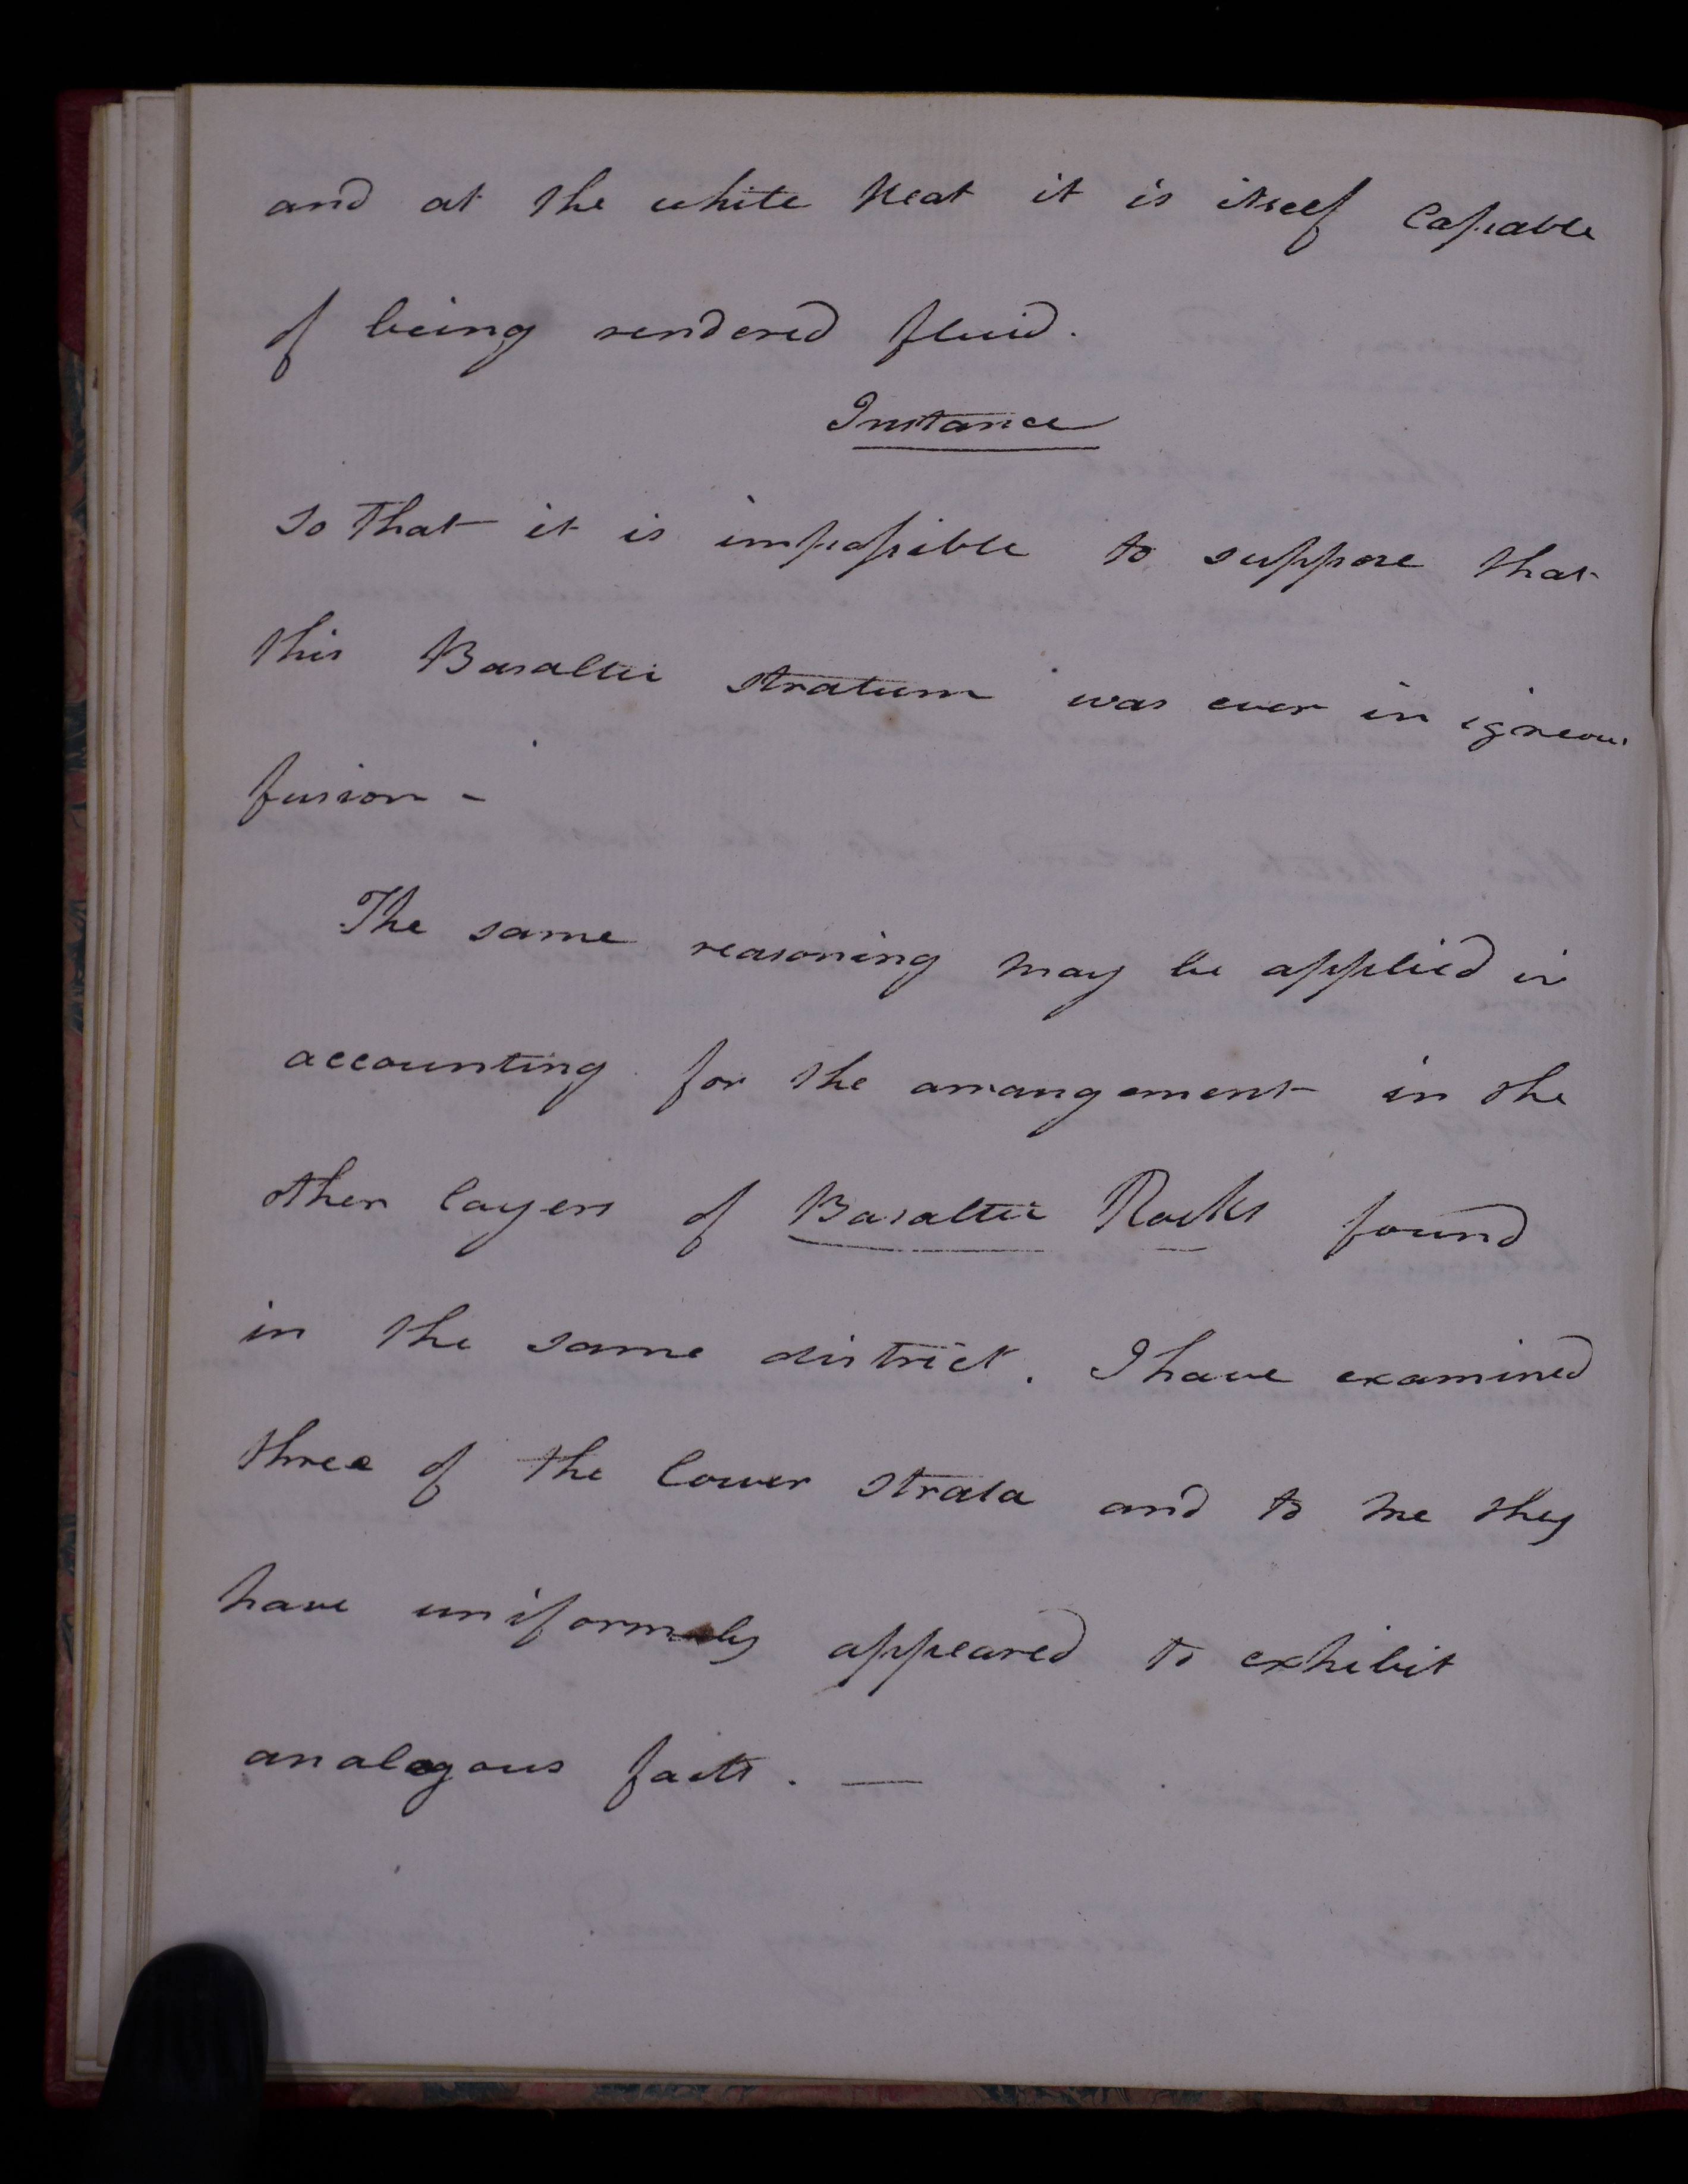 and at the white heat it is itself capable
of being rendered fluid.
Instance
so that it is impossible to suppose that
this Basaltic stratum was ever in igneous
fusion -
The same reasoning may be applied in
accounting for the arrangement in the
other layers of Basaltic Rocks found
in the same district. I have examined
three of the lower strata and to me they
have uniformly appeared to exhibit
analogous facts. —